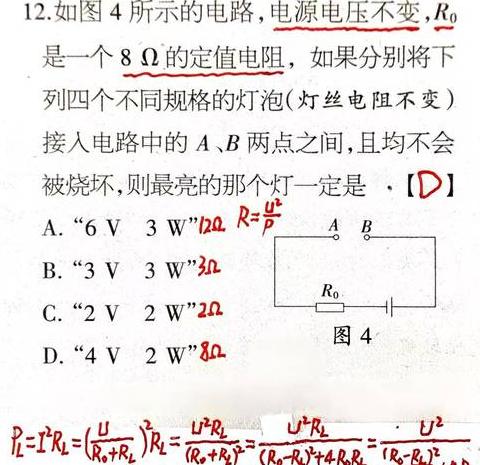 12.如图 4 所示的电路,电源电压不变,R₀
是一个 8 Ω 的定值电阻，如果分别将下
列四个不同规格的灯泡(灯丝电阻不变)
接入电路中的 A、B 两点之间,且均不会
被烧坏,则最亮的那个灯一定是 【D】
A. “6 V 3 W” 12Ω R=U²/P
B. “3 V 3 W” 3Ω
C. “2 V 2 W” 2Ω
D. “4 V 2 W” 8Ω
A B
R₀
图 4
P_L=I²R_L=(U/(R₀+R_L))²R_L=U²R_L/(R₀+R_L)²=U²R_L/((R₀-R_L)²+4R₀R_L)=U²/(R₀-R_L)²